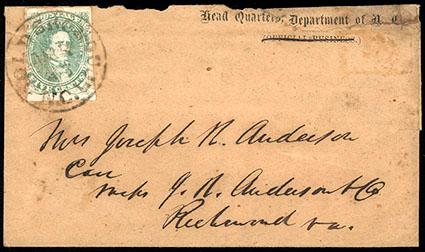 Head Quarters, Department of N. C.
(OFFICIAL BUSINESS.)
GOLDSBORO
N.C.
Mrs Joseph R. Anderson
Care
J. R. Anderson & Co
Richmond Va.